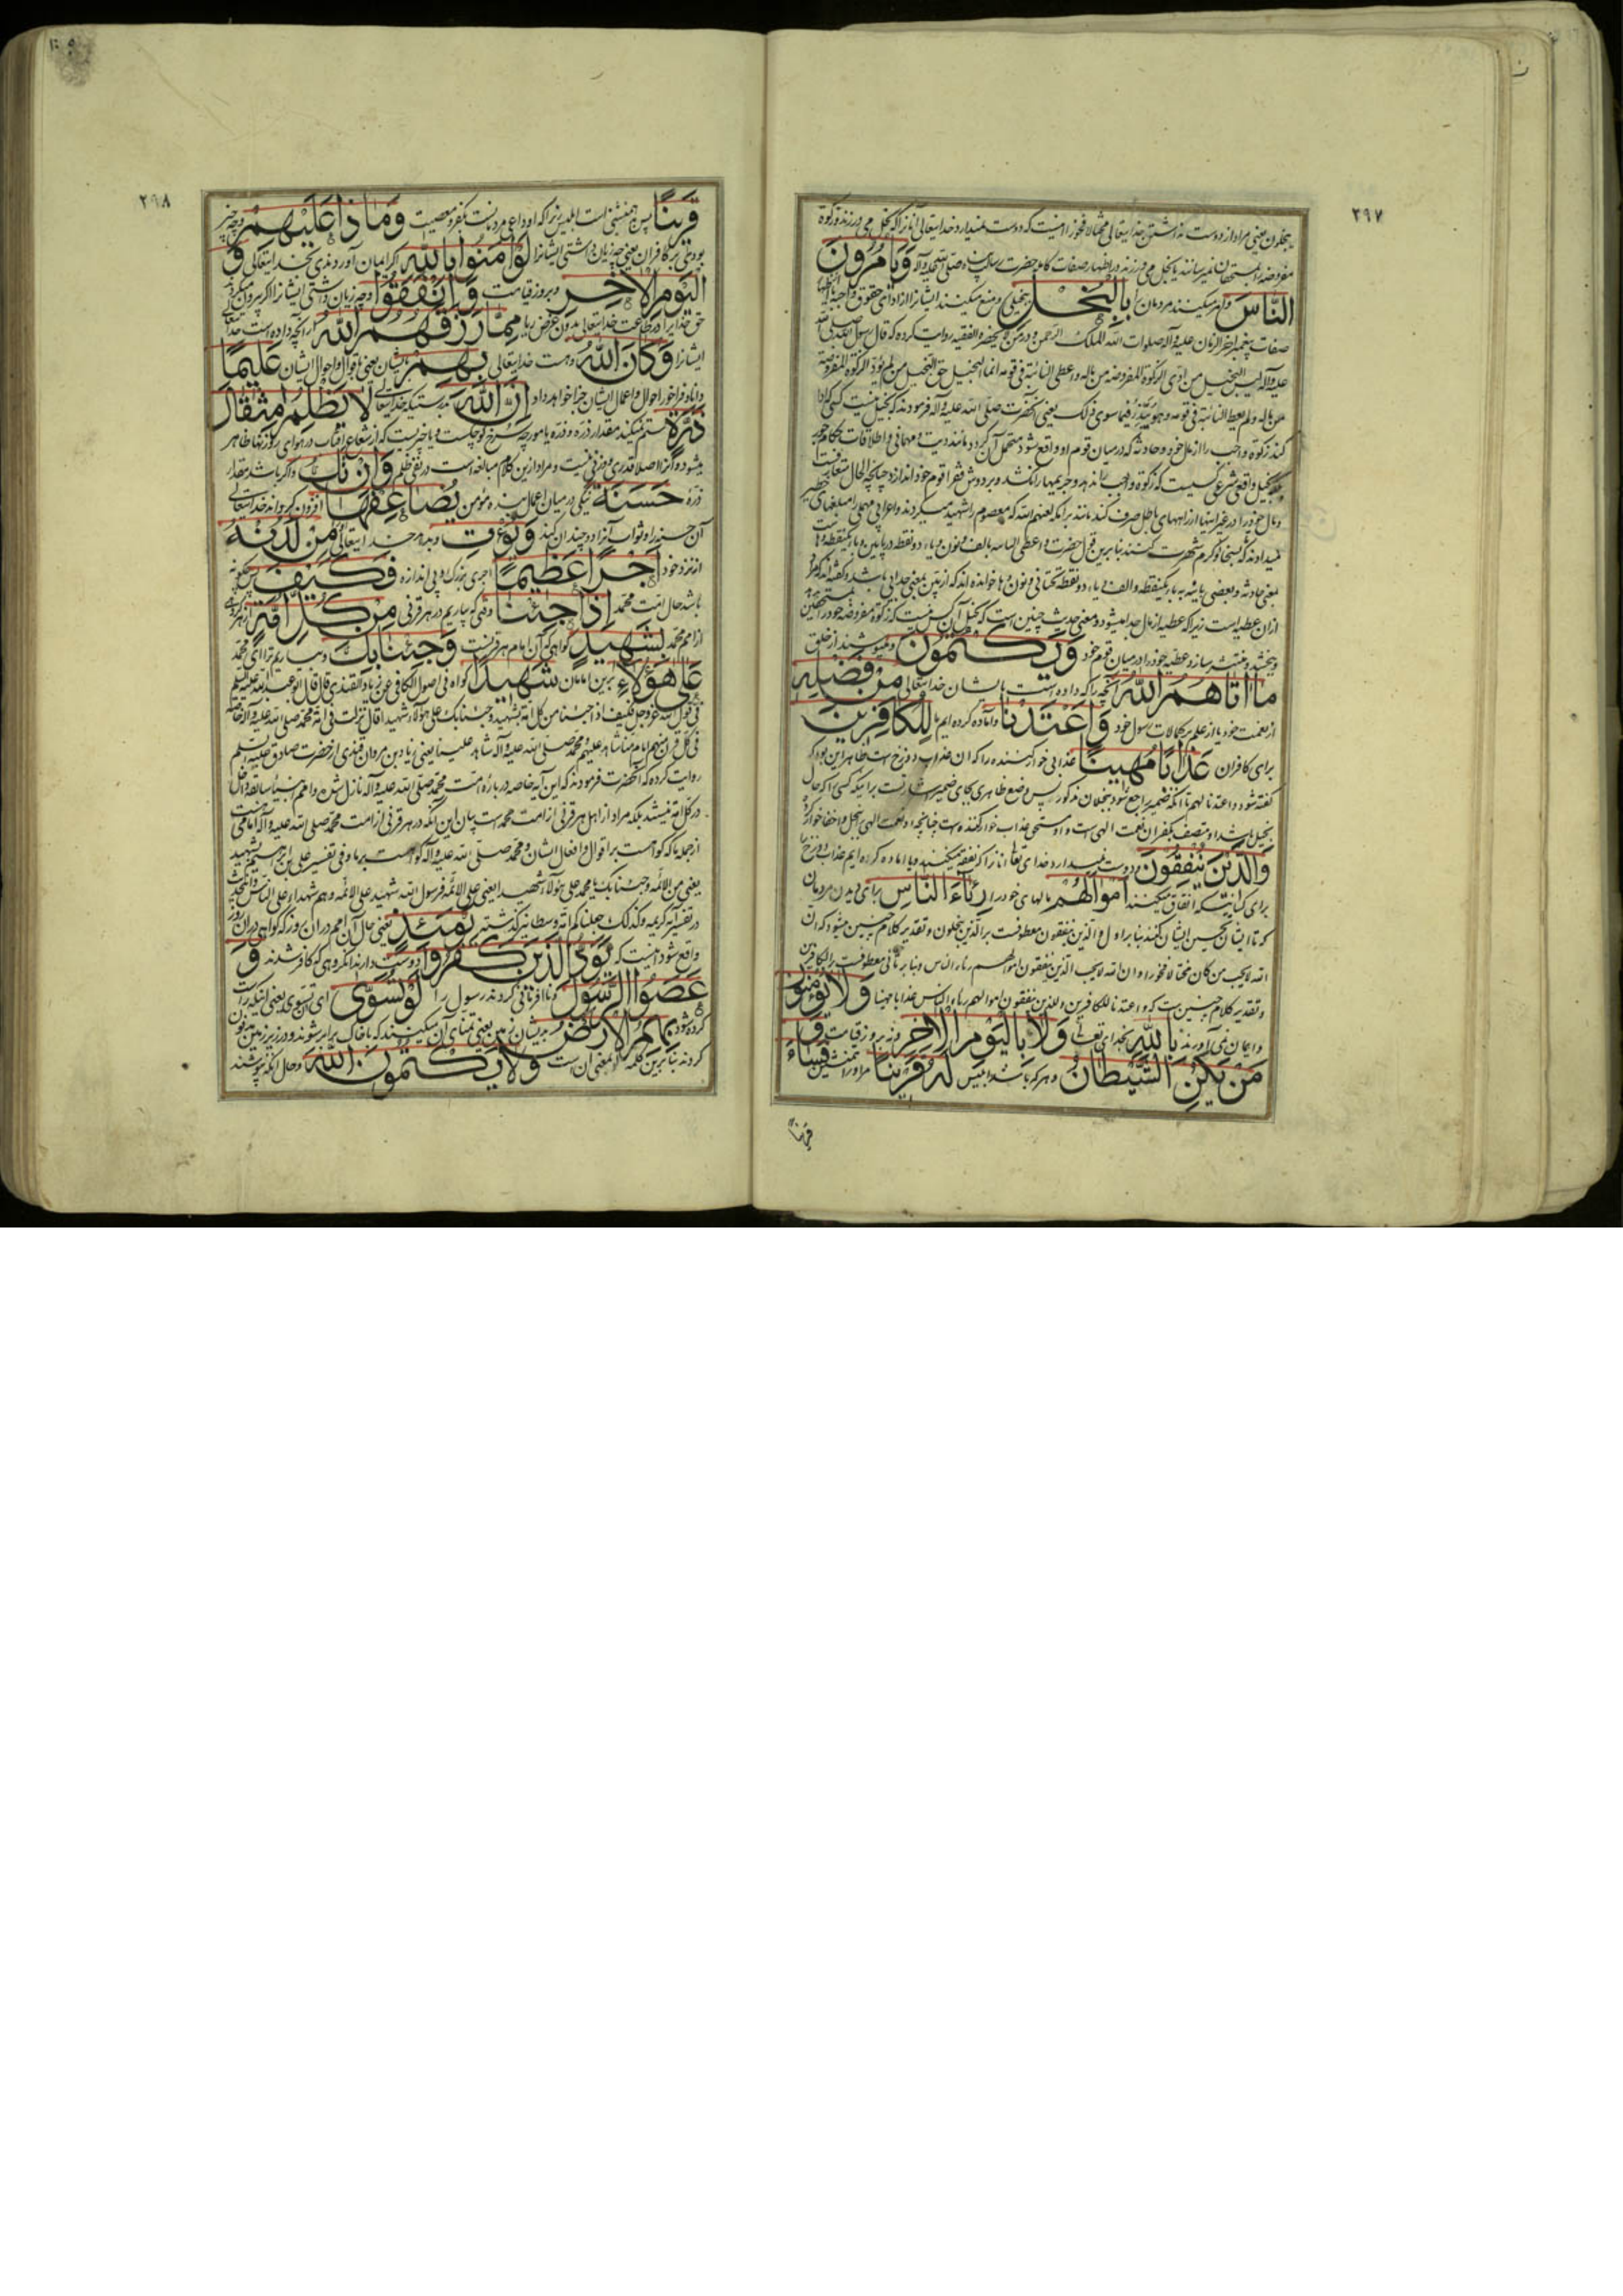 ۲۹۷
یبخلون یعنی مراد از دوست نداشتن خدایتعالی مختالا فخورا اینست که دوست نمیدارد خدایتعالی آنانرا که بخل می ورزند و زکوة
مفروضه را بمستحقان نمیرسانند یا بخل می ورزند در اظهار صفات کامله حضرت رسالت پناه صلی الله علیه وآله وَيَأْمُرُونَ
النَّاسَ وامر میکنند مردمان را بِالْبُخْلِ ببخیلی و منع میکنند ایشانرا از ادای حقوق واجبه
صفات پیغمبر آخر الزمان علیه وآله صلوات الله الملک الرحمن و در من لا یحضره الفقیه روایت کرده که قال رسول الله صلی الله
علیه وآله لیس البخیل من ادّی الزکوة المفروضة من ماله واعطی النائبة فی قومه انما البخیل حق البخیل من لم یؤد الزکوة المفروضة
من ماله ولم یعط النائبة فی قومه وهو یبذر فیما سوی ذلک یعنی آنحضرت صلی الله علیه وآله فرمودند که بخیل نیست کسی که ادا
کند زکوة واجب را از مال خود و حادثه که در میان قوم او واقع شود متحمل آن گردد مانند دیت و مهمانی
بخیل واقعی شرعی کسیست که زکوة واجب را ندهد و جریمها را نکشد و بر دوش فقرا قوم خود اندازد چنانچه الحال متعارفست
ومال خود را در غیر اینها از راههای باطل صرف کند مانند آنکه لعنهم الله که معصوم را شهید میکردند و اعرابی مهملی را مبلغهای خطیر
میدادند که بسخا و کرم شهرت کنند بنا برین قول حضرت واعطی النائبه بالف ونون ویاء دو نقطه در پایین و باء یکنقطه وها
بمعنی حادثه و بعضی بائنه به باء یکنقطه والف ویاء دو نقطه تحتانی ونون وها خوانده اند که از بین بمعنی جدایی باشد وگفته اند که مراد
ازان عطیه است زیرا که عطیه از مال جدا میشود و معنی حدیث چنین است که بخیل آن کس نیست که زکوة مفروضه خود را بمستحقین
ببخشد و منتشر سازد عطیه خود را در میان قوم خود وَيَكْتُمُونَ و میپوشند از خلق
مَا آتَاهُمُ اللَّهُ آنچه را که داده است بایشان خدایتعالی مِنْ فَضْلِهِ
از نعمت خود یا از علم بکمالات رسول خود وَأَعْتَدْنَا وآماده کرده ایم لِلْكَافِرِينَ
برای کافران عَذَابًا مُهِينًا عذابی خوار کننده را که آن عذاب دوزخ است ظاهر این بود که
گفته شود واعتدنا لهم تا آنکه ضمیر راجع شود ببخلان مذکور پس وضع ظاهر بجای ضمیر اشارتست برا یکه کسی که حال
بخیل باشد او متصف بکفران نعمت الهی است و او مستحق عذاب خوار کننده است چنانچه او نعمت الهی ببخل و اخفا خوار کرده
وَالَّذِينَ يُنْفِقُونَ و دوست نمیدارد خدای تعالی آنانرا که نفقه میکنند و یا آماده کرده ایم عذاب دوزخ را
برای کسانیکه انفاق میکنند أَمْوَالَهُمْ مالهای خود را رِئَاءَ النَّاسِ برای دیدن مردمان
که تا ایشان تحسین ایشان کنند بنا بر اول والذین ینفقون معطوفست بر الذین یبخلون و تقدیر کلام چنین میشود که ان
الله لا یحب من کان مختالا فخورا وان الله لا یحب الذین ینفقون اموالهم رئاء الناس وبنا بر ثانی معطوفست بر الکافرین
و تقدیر کلام چنین است که واعتدنا للکافرین وللذین ینفقون اموالهم رئاء الناس عذابا مهینا وَلَا يُؤْمِنُونَ
و ایمان نمی آورند بِاللَّهِ بخدای تعالی وَلَا بِالْيَوْمِ الْآخِرِ ونه بروز قیامت وَ
مَنْ يَكُنِ الشَّيْطَانُ وهر که باشد ابلیس لَهُ قَرِينًا مر او را همنشین فَسَاءَ
قرینا
۲۹۸
قَرِينًا پس بد همنشینی است ابلیس زیرا که او داعی مردمانست بکفر و معصیت وَمَاذَا عَلَيْهِمْ وچه چیز
بودی بر کافران یعنی چه زیان داشتی ایشانرا لَوْ آمَنُوا بِاللَّهِ اگر ایمان آوردندی بخدایتعالی وَ
الْيَوْمِ الْآخِرِ و بروز قیامت وَأَنْفَقُوا وچه زیان داشتی ایشانرا اگر بیرون میکردند
حق خدا را در طاعت خدایتعالی بدون غرض ریا مِمَّا رَزَقَهُمُ اللَّهُ از آنچه داده است خدایتعالی
ایشانرا وَكَانَ اللَّهُ وهست خدایتعالی بِهِمْ بایشان یعنی باقوال واحوال ایشان عَلِيمًا
دانا و فراخور احوال و اعمال ایشان جزا خواهد داد إِنَّ اللَّهَ بدرستیکه خدایتعالی لَا يَظْلِمُ مِثْقَالَ
ذَرَّةٍ ستم نمیکند مقدار ذره و ذره یا مورچه سرخ کوچکست و یا چیزیست که از شعاع آفتاب در هوای روزنها ظاهر
میشود و آنرا اصلا قدری و وزنی نیست و مراد ازین کلام مبالغه است در نفی ظلم وَإِنْ تَكُ واگر باشد مقدار
ذره حَسَنَةً نیکی در میان اعمال بنده مومن يُضَاعِفْهَا افزون گرداند خدایتعالی
آن حسنه را و ثواب آنرا دو چندان کند وَيُؤْتِ و بدهد خدایتعالی مِنْ لَدُنْهُ
از نزد خود أَجْرًا عَظِيمًا اجری بزرگ و بی اندازه فَكَيْفَ پس چگونه
باشد حال امت محمد إِذَا جِئْنَا وقتی که بیاریم در هر قرنی مِنْ كُلِّ أُمَّةٍ از هر گروهی
از امم محمد بِشَهِيدٍ گواهی که آن امام هر قرنست وَجِئْنَا بِكَ و بیاریم ترا ای محمد
عَلَى هَؤُلَاءِ برین امامان شَهِيدًا گواه فی اصول الکافی عن زیاد القندی قال قال ابو عبد الله علیه السلم
فی قول الله عز وجل فکیف اذا جئنا من کل امة بشهید وجئنا بک علی هؤلاء شهیدا قال نزلت فی امة محمد صلی الله علیه وآله خاصة
فی کل قرن منهم امام منا شاهد علیهم ومحمد صلی الله علیه وآله شاهد علینا یعنی زیاد بن مروان قندی از حضرت صادق علیه السلم
روایت کرده که آنحضرت فرمودند که این آیه خاصه در باره امت محمد صلی الله علیه وآله نازل شده و امم انبیاء سابقه داخل
در کل امة نیستند بلکه مراد از اهل هر قرنی از امت محمدست بیان این آنکه در هر قرنی از امت محمد صلی الله علیه وآله امامی هست
از جمله ما که گواهست بر اقوال و افعال ایشان ومحمد صلی الله علیه وآله گواهست بر ما وفی تفسیر علی بن ابرهیم بشهید
یعنی من الائمه وجئنا بک یا محمد علی هؤلاء شهیدا یعنی علی الائمه فرسول الله شهید علی الائمه وهم شهداء علی الناس
در تفسیر آیه کریمه وکذلک جعلناکم امة وسطا نیز گذشته يَوْمَئِذٍ یعنی حال آن امم در ان روز که گواهی در ان روز
واقع شود اینست که يَوَدُّ الَّذِينَ كَفَرُوا دوست دارند آنگروهی که کافر شدند وَ
عَصَوُا الرَّسُولَ ونا فرمانی کردند رسول را لَوْ تُسَوَّى ای ان تسوی یعنی اینکه راست
کرده شود بِهِمُ الْأَرْضُ بدیشان زمین یعنی تمنای آن میکنند که با خاک برابر شوند و در زیر زمین مدفون
گردند بنا برین کلمه لو بمعنی ان است وَلَا يَكْتُمُونَ اللَّهَ وحال آنکه نپوشند